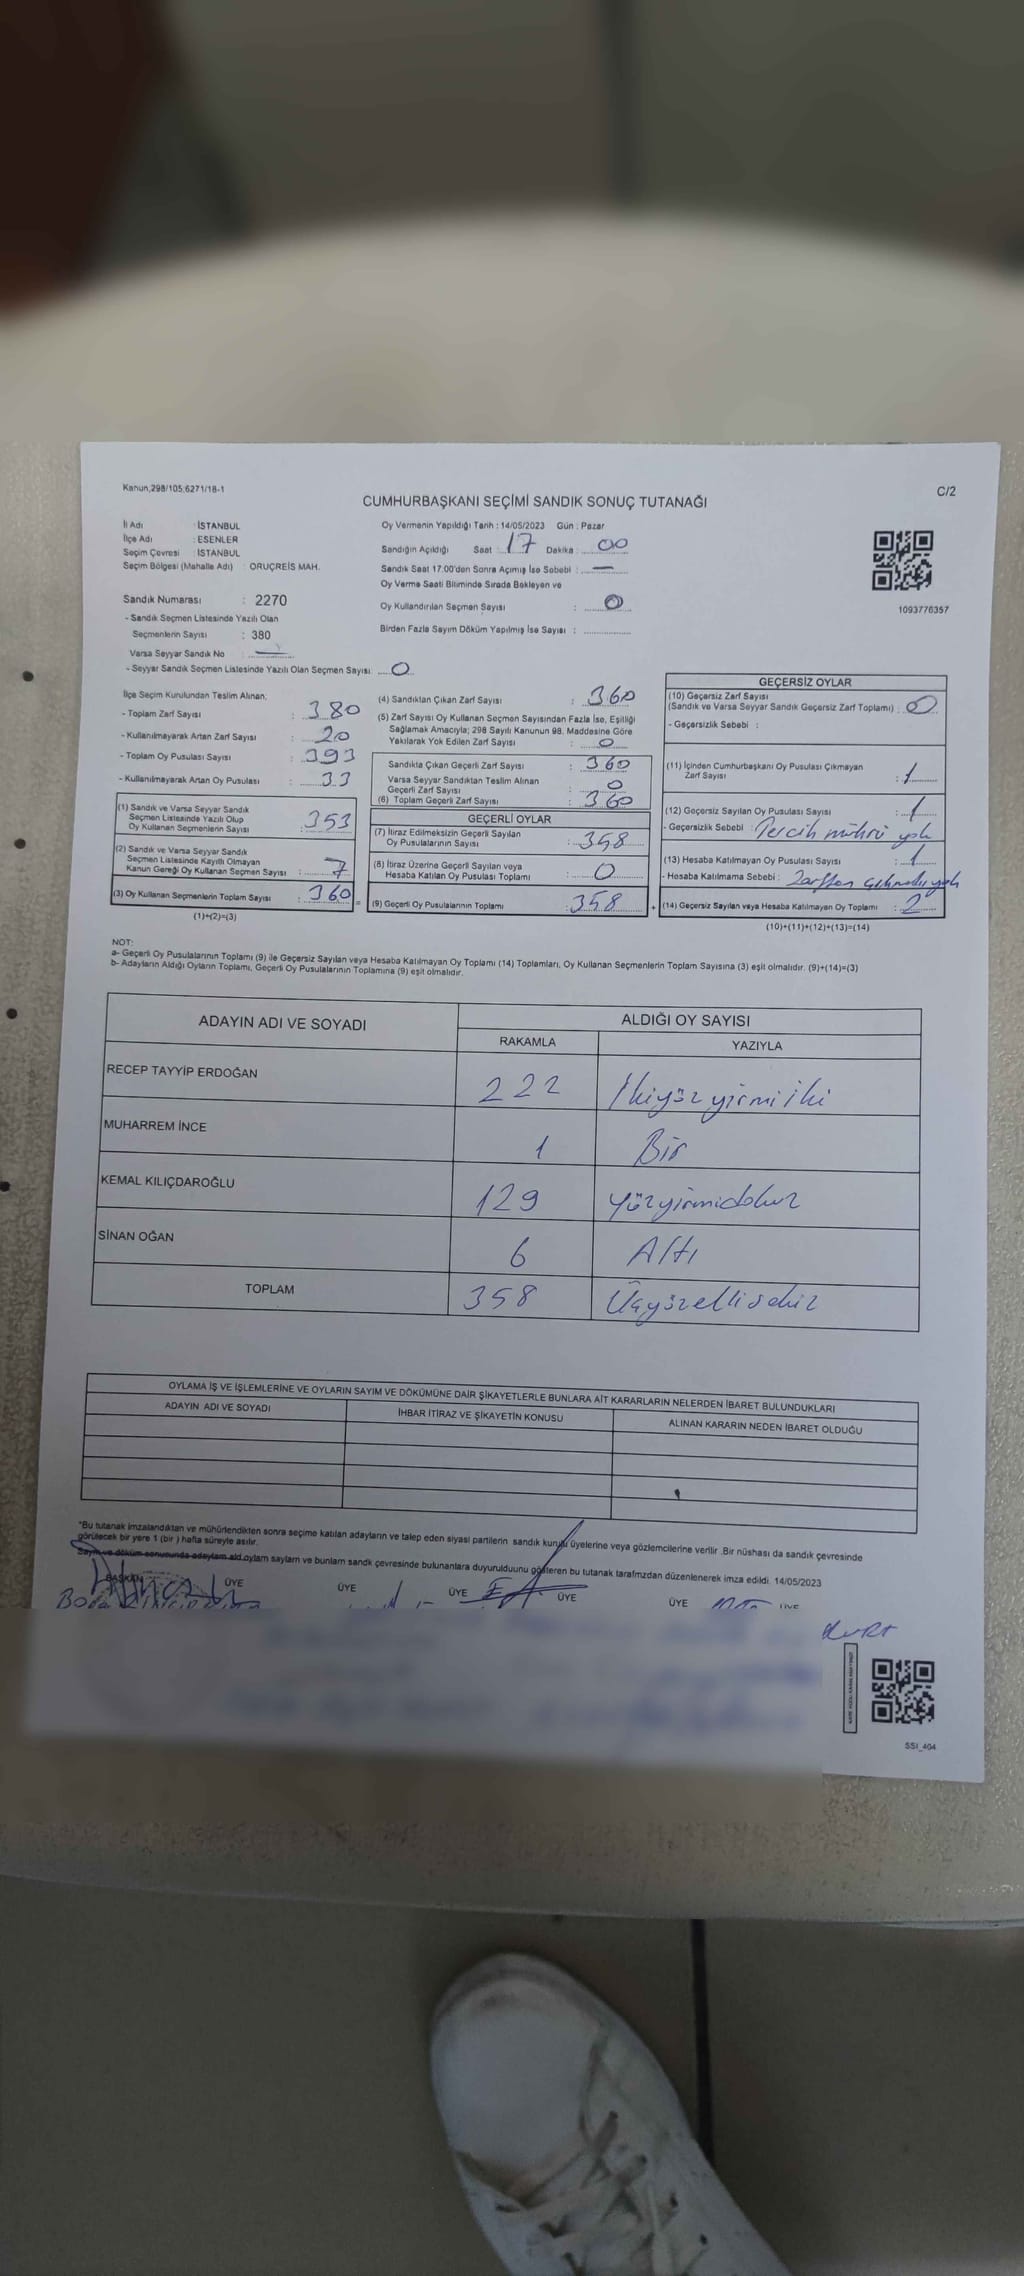 Kanun,298/105,6271/18-1
C/2
CUMHURBAŞKANI SEÇİMİ SANDIK SONUÇ TUTANAĞI
İl Adı : İSTANBUL
İlçe Adı : ESENLER
Seçim Çevresi : İSTANBUL
Seçim Bölgesi (Mahalle Adı) : ORUÇREİS MAH.
Sandık Numarası : 2270
- Sandık Seçmen Listesinde Yazılı Olan
Seçmenlerin Sayısı : 380
Varsa Seyyar Sandık No : —
- Seyyar Sandık Seçmen Listesinde Yazılı Olan Seçmen Sayısı: 0
Oy Vermenin Yapıldığı Tarih : 14/05/2023 Gün : Pazar
Sandığın Açıldığı Saat : 17 Dakika : 00
Sandık Saat 17.00'den Sonra Açımış İse Sebebi : —
Oy Verme Saati Bitiminde Sırada Bekleyen ve
Oy Kullandırılan Seçmen Sayısı : 0
Birden Fazla Sayım Döküm Yapılmış İse Sayısı :
1093776357
İlçe Seçim Kurulundan Teslim Alınan;
- Toplam Zarf Sayısı : 380
- Kullanılmayarak Artan Zarf Sayısı : 20
- Toplam Oy Pusulası Sayısı : 393
- Kullanılmayarak Artan Oy Pusulası : 33
(1) Sandık ve Varsa Seyyar Sandık
Seçmen Listesinde Yazılı Olup
Oy Kullanan Seçmenlerin Sayısı : 353
(2) Sandık ve Varsa Seyyar Sandık
Seçmen Listesinde Kayıtlı Olmayan
Kanun Gereği Oy Kullanan Seçmen Sayısı : 7
(3) Oy Kullanan Seçmenlerin Toplam Sayısı : 360 =
(1)+(2)=(3)
(4) Sandıktan Çıkan Zarf Sayısı : 360
(5) Zarf Sayısı Oy Kullanan Seçmen Sayısından Fazla İse, Eşitliği
Sağlamak Amacıyla; 298 Sayılı Kanunun 98. Maddesine Göre
Yakılarak Yok Edilen Zarf Sayısı : 0
Sandıkta Çıkan Geçerli Zarf Sayısı : 360
Varsa Seyyar Sandıktan Teslim Alınan
Geçerli Zarf Sayısı : 0
(6) Toplam Geçerli Zarf Sayısı : 360
GEÇERLİ OYLAR
(7) İtiraz Edilmeksizin Geçerli Sayılan
Oy Pusulalarının Sayısı : 358
(8) İtiraz Üzerine Geçerli Sayılan veya
Hesaba Katılan Oy Pusulası Toplamı : 0
(9) Geçerli Oy Pusulalarının Toplamı : 358 +
GEÇERSİZ OYLAR
(10) Geçersiz Zarf Sayısı
(Sandık ve Varsa Seyyar Sandık Geçersiz Zarf Toplamı) : 0
- Geçersizlik Sebebi :
(11) İçinden Cumhurbaşkanı Oy Pusulası Çıkmayan
Zarf Sayısı : 1
(12) Geçersiz Sayılan Oy Pusulası Sayısı : 1
- Geçersizlik Sebebi : Tercih mührü yok
(13) Hesaba Katılmayan Oy Pusulası Sayısı : 1
- Hesaba Katılmama Sebebi : Zarftan
(14) Geçersiz Sayılan veya Hesaba Katılmayan Oy Toplamı : 2
(10)+(11)+(12)+(13)=(14)
NOT:
a- Geçerli Oy Pusulalarının Toplamı (9) ile Geçersiz Sayılan veya Hesaba Katılmayan Oy Toplamı (14) Toplamları, Oy Kullanan Seçmenlerin Toplam Sayısına (3) eşit olmalıdır. (9)+(14)=(3)
b- Adayların Aldığı Oyların Toplamı, Geçerli Oy Pusulalarının Toplamına (9) eşit olmalıdır.
ADAYIN ADI VE SOYADI ALDIĞI OY SAYISI
RAKAMLA YAZIYLA
RECEP TAYYİP ERDOĞAN 222 İkiyüzyirmiiki
MUHARREM İNCE 1 Bir
KEMAL KILIÇDAROĞLU 129 Yüzyirmidokuz
SİNAN OĞAN 6 Altı
TOPLAM 358 Üçyüzellisekiz
OYLAMA İŞ VE İŞLEMLERİNE VE OYLARIN SAYIM VE DÖKÜMÜNE DAİR ŞİKAYETLERLE BUNLARA AİT KARARLARIN NELERDEN İBARET BULUNDUKLARI
ADAYIN ADI VE SOYADI İHBAR İTİRAZ VE ŞİKAYETİN KONUSU ALINAN KARARIN NEDEN İBARET OLDUĞU
*Bu tutanak imzalandıktan ve mühürlendikten sonra seçime katılan adayların ve talep eden siyasi partilerin sandık kurulu üyelerine veya gözlemcilerine verilir .Bir nüshası da sandık çevresinde
görülecek bir yere 1 (bir ) hafta süreyle asılır.
Sayım ve döküm sonucunda adayların aldığı oyların sayıları ve bunların sandık çevresinde bulunanlara duyurulduğunu gösteren bu tutanak tarafımızdan düzenlenerek imza edildi. 14/05/2023
BAŞKAN ÜYE ÜYE ÜYE ÜYE ÜYE ÜYE
SSI_404